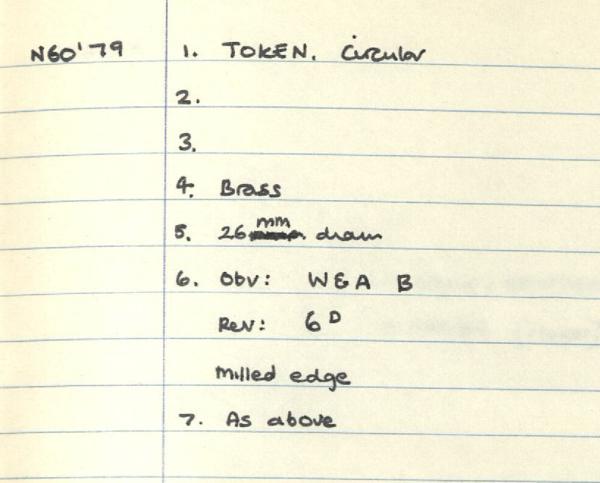 N60'79 1. TOKEN. Circular
2.
3.
4. Brass
5. 26 mm diam
6. Obv: W & A B
Rev: 6D
Milled edge
7. As above